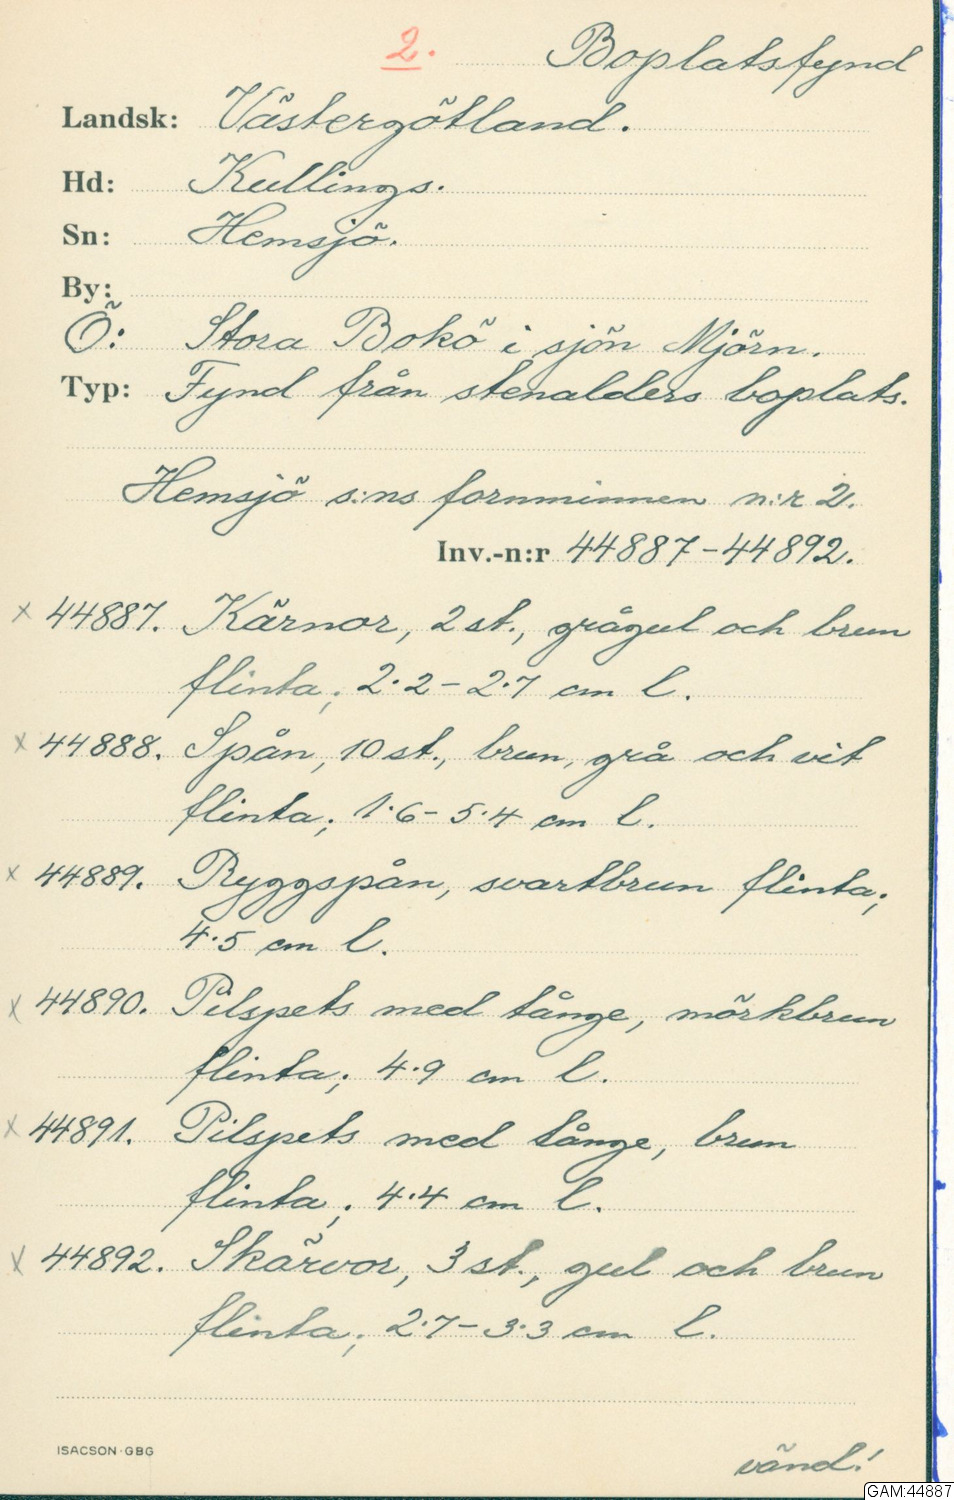 2. Boplatsfynd
Landsk: Västergötland.
Hd: Kullings.
Sn: Hemsjö.
By:
Ö: Stora Bokö i sjön Mjörn.
Typ: Fynd från stenålders boplats.
Hemsjö s:ns fornminnen n:r 2.
Inv.-n:r 44887-44892.
x 44887. Kärnor, 2 st., grågul och brun
flinta; 2·2-2·7 cm l.
x 44888. Spån, 10 st., brun, grå och vit
flinta; 1·6-5·4 cm l.
x 44889. Ryggspån, svartbrun flinta;
4·5 cm l.
x 44890. Pilspets med tånge, mörkbrun
flinta; 4·9 cm l.
x 44891. Pilspets med tånge, brun
flinta; 4·4 cm l.
x 44892. Skärvor, 3 st., gul och brun
flinta; 2·7-3·3 cm l.
ISACSON·GBG
vänd!
GAM:44887